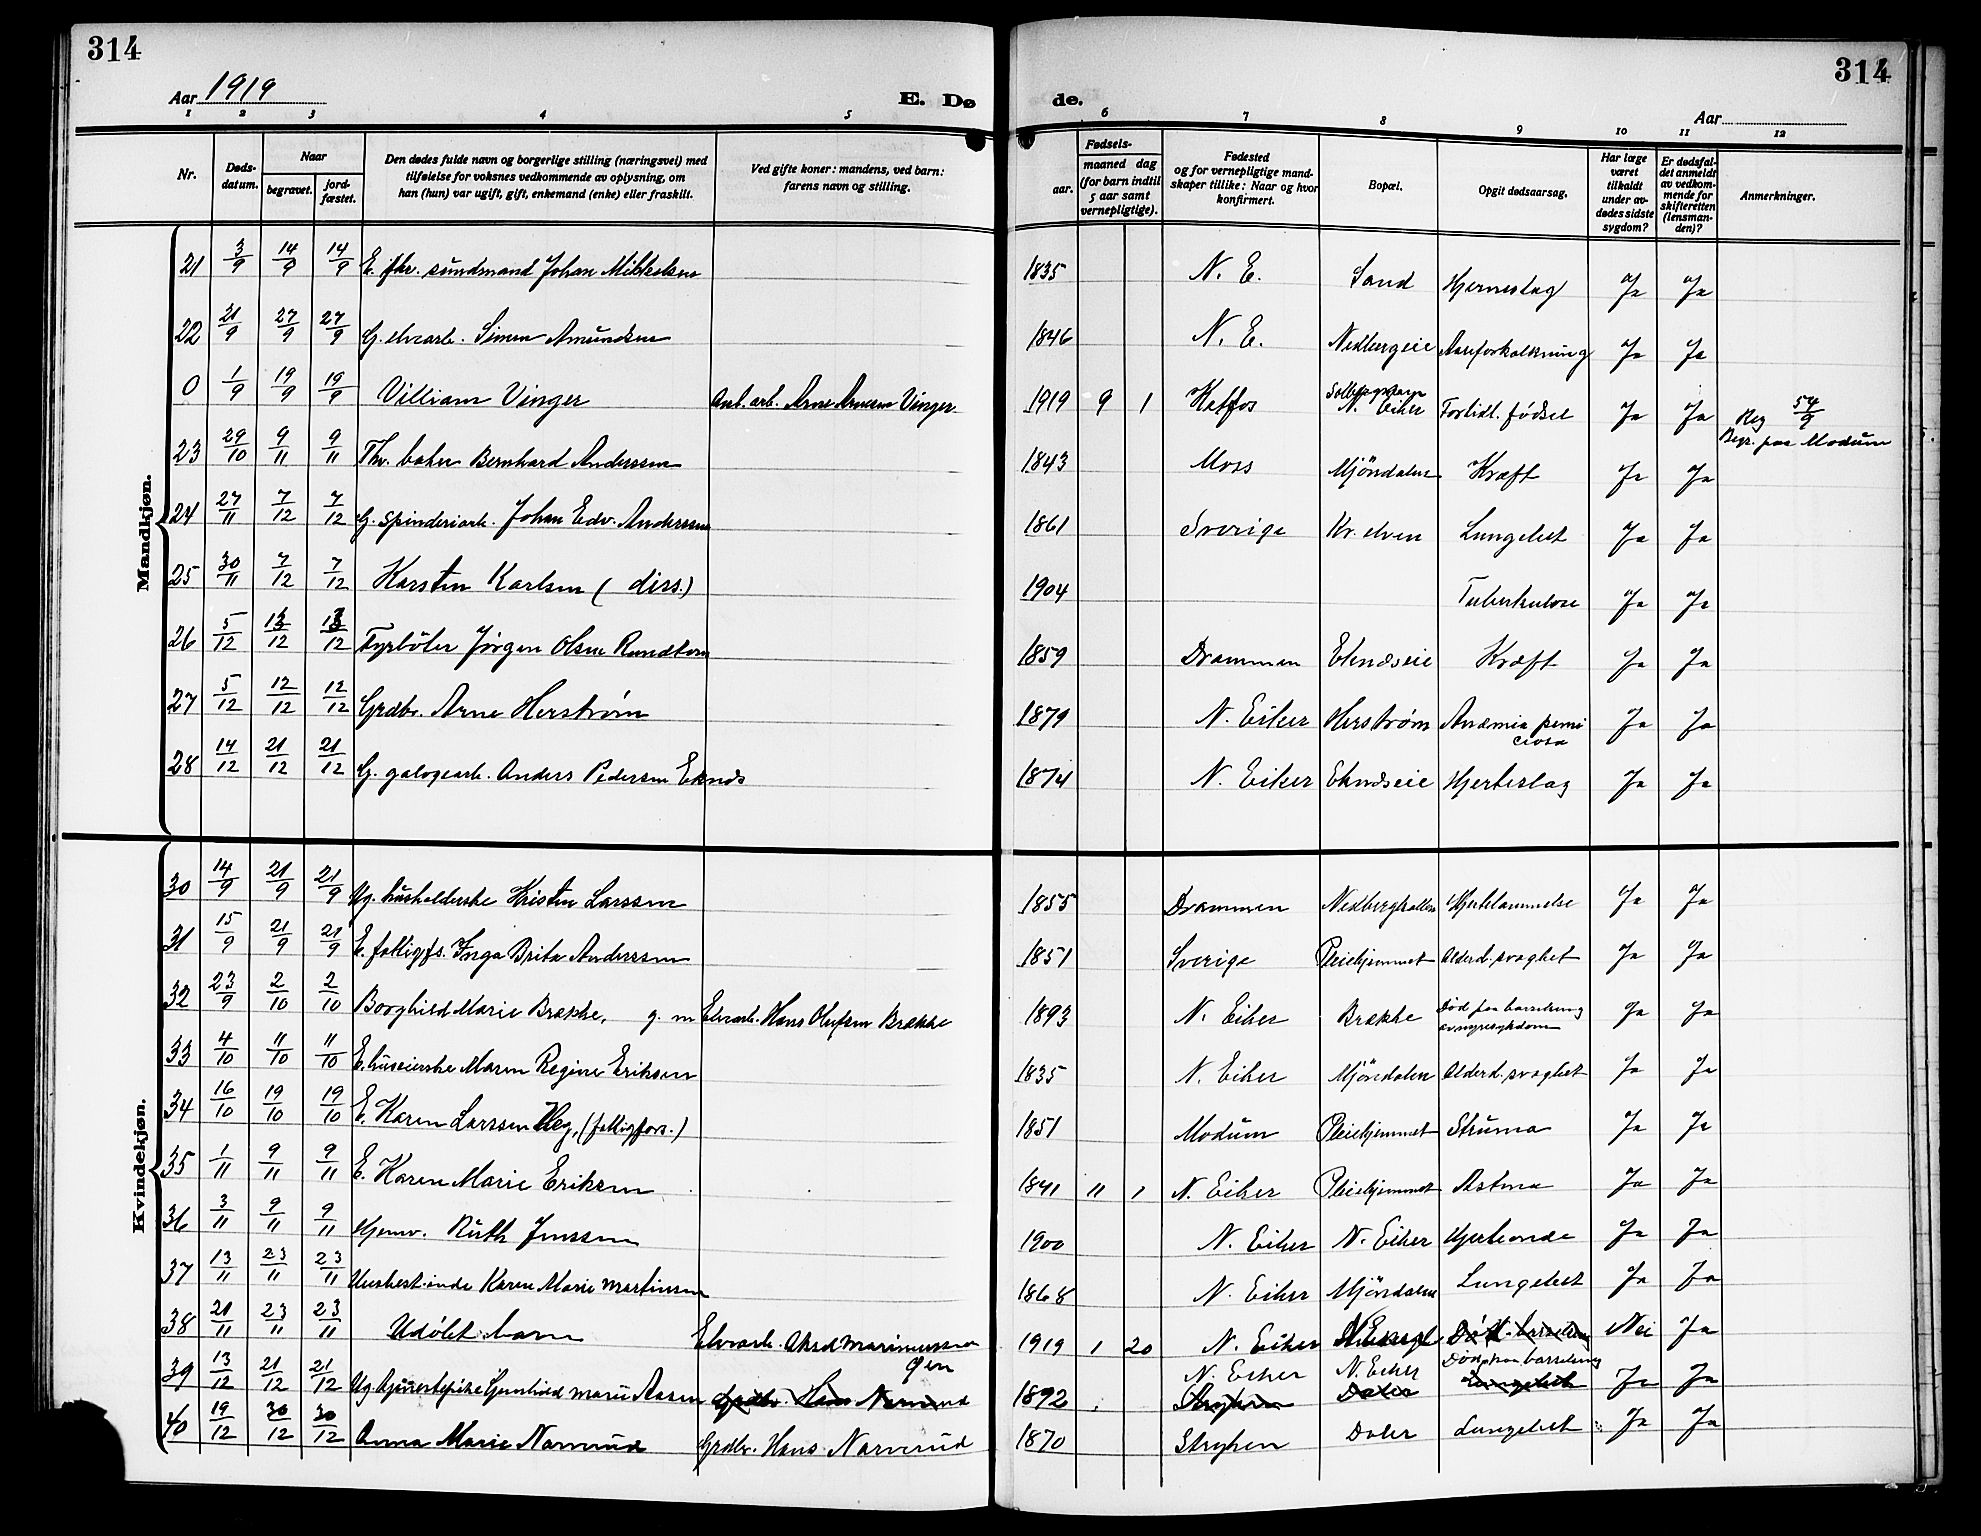 314
314
Aar 1919
E. Dø
de.
Aar
1 2 3 4 5 6 7 8 9 10 11 12
Nr.
Døds-
datum.
Naar
begravet.
jord-
fæstet.
Den dødes fulde navn og borgerlige stilling (næringsvei) med
tilføielse for voksnes vedkommende av oplysning, om
han (hun) var ugift, gift, enkemand (enke) eller fraskilt.
Ved gifte koner: mandens, ved barn:
farens navn og stilling.
Fødsels-
aar.
maaned dag
(for barn indtil
5 aar samt
vernepligtige).
Fødested
og for vernepligtige mand-
skaper tillike: Naar og hvor
konfirmert.
Bopæl.
Opgit dødsaarsag.
Har læge
været
tilkaldt
under av-
dødes sidste
sygdom?
Er dødsfal-
det anmeldt
av vedkom-
mende for
skifteretten
(lensman-
den)?
Anmerkninger.
Mandkjøn.
21 3/9 14/9 14/9 E. fhv. sundmand Johan Mikkelsen 1835 N. E. Sand Hjerneslag Ja Ja
22 21/9 27/9 27/9 G. elvearb. Simen Amundsen 1846 N. E. Nedbergeie Aareforkalkning Ja Ja
0 1/9 19/9 19/9 Villiam Vinger Anl. arb. Arne Arnesen Vinger 1919 9 1 Katfos N. Eiker Fortidl. fødsel Ja Ja Reg 54/9
Begr. paa Modum
23 29/10 9/11 9/11 Fhv. baker Bernhard Anderssen 1843 Moss Mjöndalen Kræft Ja Ja
24 27/11 7/12 7/12 G. spinderiarb. Johan Edv. Anderssen 1861 Sverige Kr. elven Lungebet Ja Ja
25 30/11 7/12 7/12 Karsten Karlsen (diss.) 1904 Tuberkulose Ja Ja
26 5/12 13/12 13/12 Fyrböter Jørgen Olsen Rundtom 1859 Drammen Eknæseie Kræft Ja Ja
27 5/12 12/12 12/12 Grdbr. Arne Herstrøm 1879 N. Eiker Herstrøm Anæmia perni
ciosa Ja Ja
28 14/12 21/12 21/12 G. galogearb. Anders Pedersen Eknæs 1874 N. Eiker Eknæseie Hjerteslag Ja Ja
Kvindekjøn.
30 14/9 21/9 21/9 Ug. husholderske Kristin Larssen 1855 Drammen Nedberghallen Hjertelammelse Ja Ja
31 15/9 21/9 21/9 E. fattigfs. Inga Brita Anderssen 1851 Sverige Pleiehjemmet Alderd. svaghet Ja Ja
32 23/9 2/10 2/10 Borghild Marie Brække, g. m Elvearb. Hans Olufsen Brække 1893 N. Eiker Brække Död paa barselseng
av nyresykdom Ja Ja
33 4/10 11/10 11/10 E. huseierske Maren Regine Eriksen 1835 N. Eiker Mjöndalen Alderd. svaghet Ja Ja
34 16/10 19/10 19/10 E. Karen Larssen Heg, (fattigfors.) 1851 Modum Pleiehjemmet Struma Ja Ja
35 1/11 9/11 9/11 E. Karen Marie Eriksen 1841 11 1 N. Eiker Pleiehjemmet Astma Ja Ja
36 3/11 9/11 9/11 Hjemv. Ruth Jenssen 1900 N. Eiker N. Eiker Hjerteonde Ja Ja
37 13/11 23/11 23/11 Husbestinde Karen Marie Martinsen 1868 N. Eiker Mjöndalen Lungebet Ja Ja
38 21/11 23/11 23/11 Udöbt barn Elvearb. Aksel Marinussen 1919 1 20 N. Eiker Nei Ja
39 13/12 21/12 21/12 Ug tjenestepike Gunhild Marie Aasen Grdbr Hans Narverud 1892 N. Eiker N. Eiker Död paa barselseng Ja Ja
Stryken Daler Lungebet
40 19/12 30/12 30/12 Anna Marie Narverud Grdbr. Hans Narverud 1870 Stryken Daler Lungebet Ja Ja